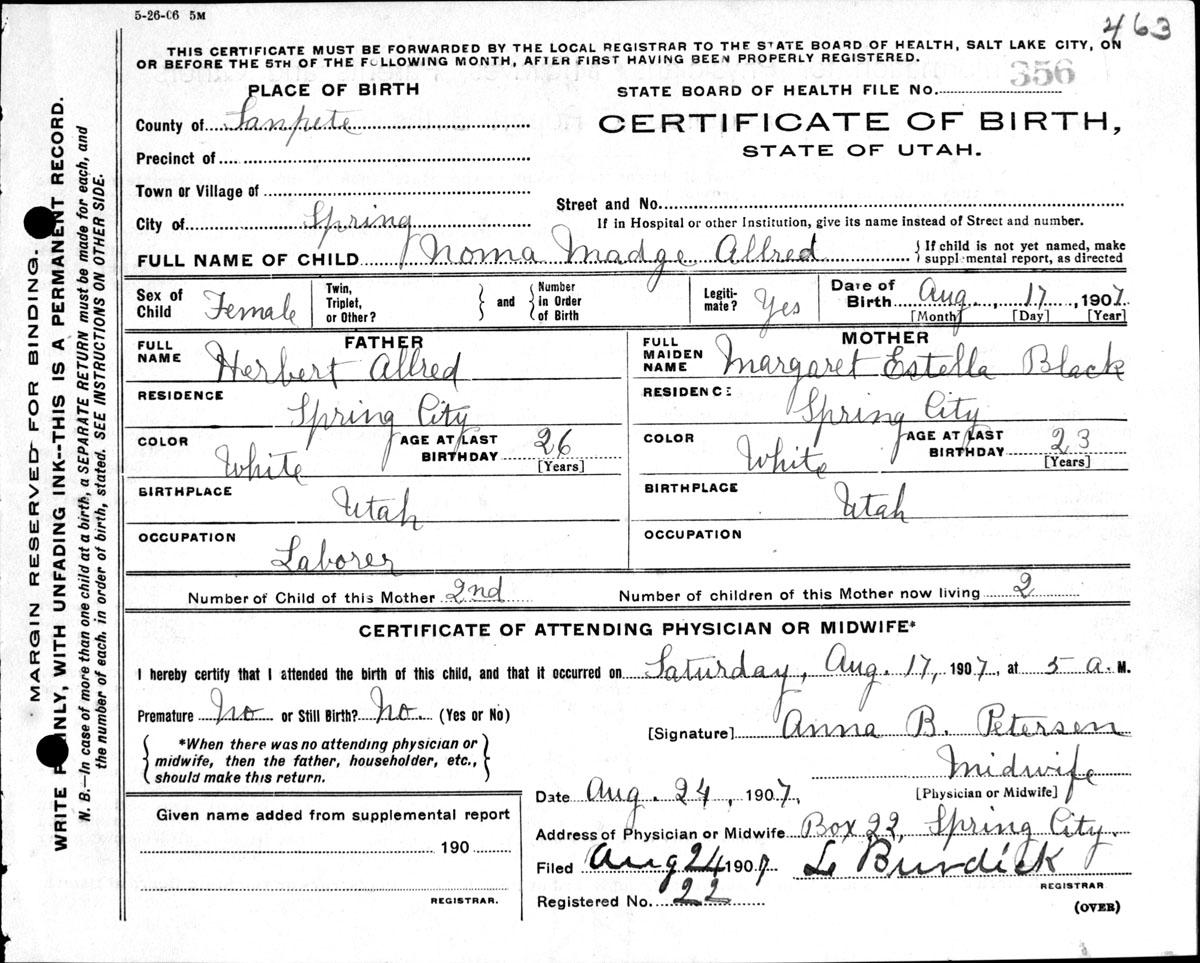 5-26-06 5M
463
THIS CERTIFICATE MUST BE FORWARDED BY THE LOCAL REGISTRAR TO THE STATE BOARD OF HEALTH, SALT LAKE CITY, ON
OR BEFORE THE 5TH OF THE FOLLOWING MONTH, AFTER FIRST HAVING BEEN PROPERLY REGISTERED.
PLACE OF BIRTH
STATE BOARD OF HEALTH FILE No. 356
County of Sanpete
CERTIFICATE OF BIRTH,
STATE OF UTAH.
Precinct of
Town or Village of
Street and No.
City of Spring
If in Hospital or other Institution, give its name instead of Street and number.
FULL NAME OF CHILD Noma Madge Allred
{ If child is not yet named, make
supplemental report, as directed
Sex of Child Female
Twin, Triplet, or Other?
and
Number in Order of Birth
Legiti-mate? Yes
Date of Birth Aug., 17, 1907
[Month] [Day] [Year]
FATHER
FULL NAME Herbert Allred
RESIDENCE
Spring City
COLOR White
AGE AT LAST BIRTHDAY 26
[Years]
BIRTHPLACE
Utah
OCCUPATION
Laborer
MOTHER
FULL MAIDEN NAME Margaret Estella Black
RESIDENCE
Spring City
COLOR White
AGE AT LAST BIRTHDAY 23
[Years]
BIRTHPLACE
Utah
OCCUPATION
Number of Child of this Mother 2nd
Number of children of this Mother now living 2
CERTIFICATE OF ATTENDING PHYSICIAN OR MIDWIFE*
I hereby certify that I attended the birth of this child, and that it occurred on Saturday, Aug. 17, 1907, at 5 a. M.
Premature No or Still Birth? No. (Yes or No)
[Signature] Anna B. Petersen
{ *When there was no attending physician or
midwife, then the father, householder, etc.,
should make this return. }
Midwife
[Physician or Midwife]
Date Aug. 24, 1907,
Address of Physician or Midwife Box 22, Spring City.
Filed Aug 24 1907 L Burdick
REGISTRAR
Registered No. 22
(OVER)
Given name added from supplemental report
190
REGISTRAR.
MARGIN RESERVED FOR BINDING.
WRITE PLAINLY, WITH UNFADING INK--THIS IS A PERMANENT RECORD.
N. B.—In case of more than one child at a birth, a SEPARATE RETURN must be made for each, and
the number of each, in order of birth, stated. SEE INSTRUCTIONS ON OTHER SIDE.